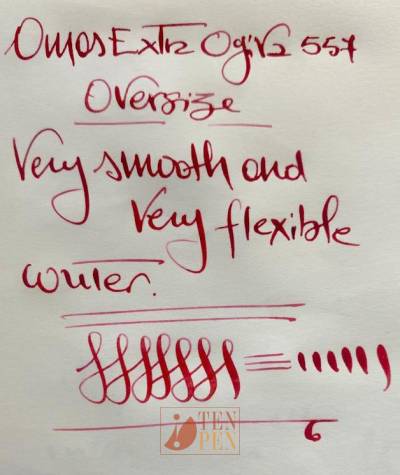 Omas Extra Ogiva 557
Oversize
Very smooth and
Very flexible
writer.
TEN
PEN
6